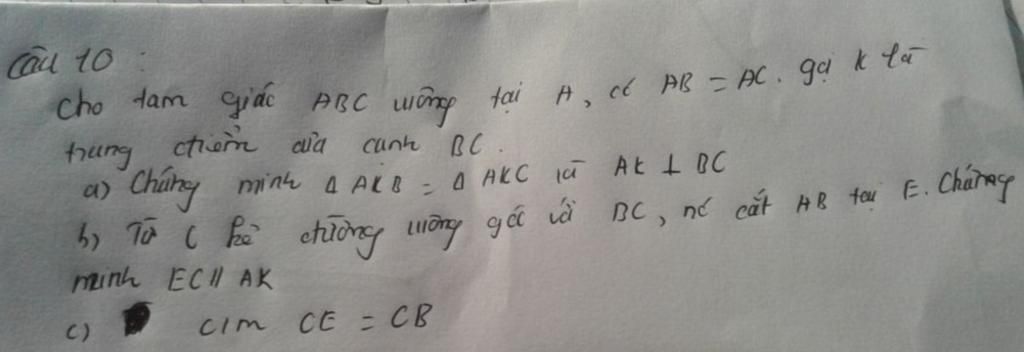 Câu 10 :
Cho tam giác ABC vuông tại A, có AB = AC. gọi K là
trung điểm của cạnh BC.
a) Chứng minh Δ AKB = Δ AKC và AK ⊥ BC
b) Từ C kẻ đường vuông góc với BC, nó cắt AB tại E. Chứng
minh EC // AK
c) C/m CE = CB